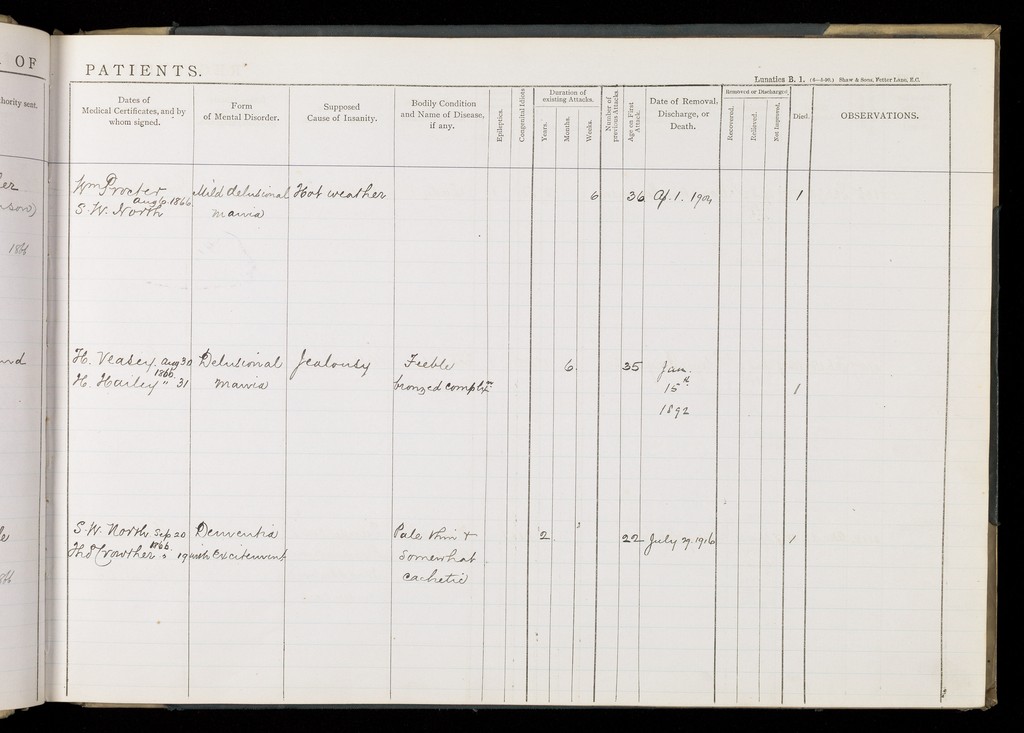 OF
PATIENTS.
Lunatics B. 1. (8—5-90.) Shaw & Sons, Fetter Lane, E.C.
hority sent.
Dates of
Medical Certificates, and by
whom signed.
Form
of Mental Disorder.
Supposed
Cause of Insanity.
Bodily Condition
and Name of Disease,
if any.
Epileptics.
Congenital Idiots
Duration of
existing Attacks.
Years.
Months.
Weeks.
Number of
previous Attacks.
Age on First
Attack.
Date of Removal,
Discharge, or
Death.
Removed or Discharged.
Recovered.
Relieved.
Not Improved.
Died.
OBSERVATIONS.
Wm Procter
Aug 6. 1866
S. W. North "
Mild delusional
mania
Hot weather
6
36
Ap. 1. 1904
1
1866
H. Veasey. Aug 30
1866
H. Hailey " 31
Delusional
mania
Jealousy
Feeble
bronzed complxn
6
35
Jan.
15th
1892
1
S. W. North Sep 20
1866.
Thos Crowther " 19
Dementia
with Excitement
Pale thin +
somewhat
cachetic
2
22
July 29. 1916
1